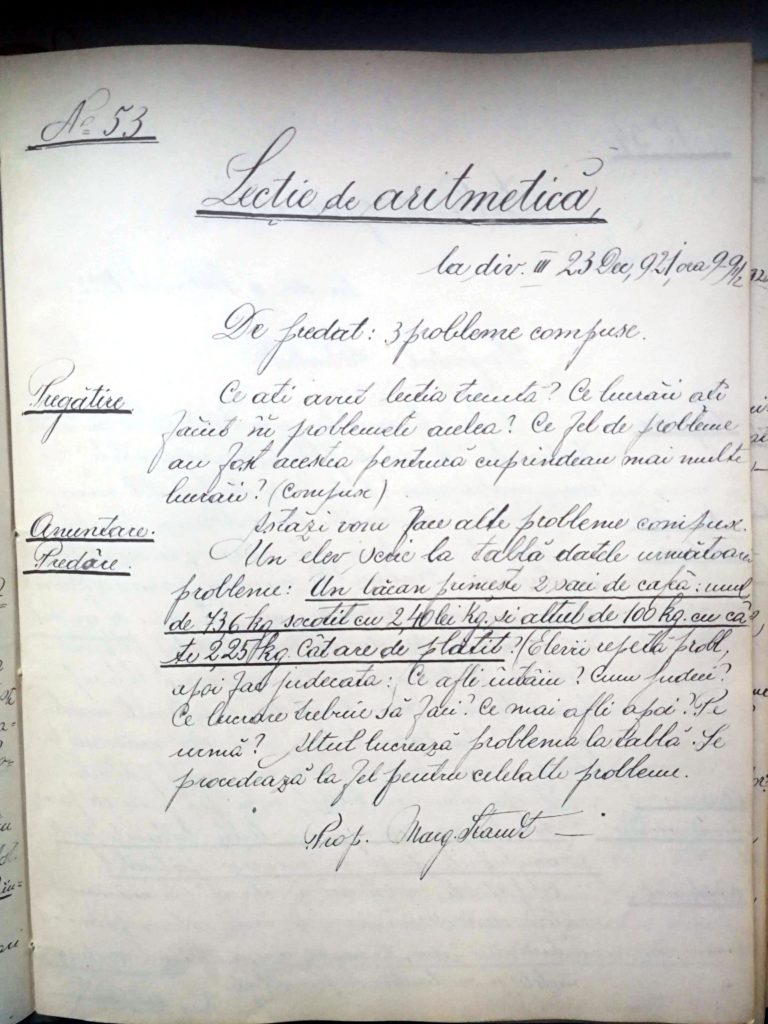 No 53
Lecție de aritmetică,
la div. III 23 Dec, 921, ora 9-9 1/2
De predat: 3 probleme compuse.
Pregătire. Ce ati avut lectia trecută? Ce lucrări ati
făcut în problemele acelea? Ce fel de probleme
au fost acestea pentrucă cuprindeau mai multe
lucrări? (compuse)
Anuntare. Astăzi vom face alte probleme compuse.
Predăre. Un elev scrie la tablă datele următoarei
probleme: Un băcan primește 2 saci de cafă: unul
de 73,6 kg socotit cu 2,40 lei kg. si altul de 100 kg. cu câ-
te 2,25/kg. Cât are de platit? (Elevii repetă probl,
apoi fac judecata: Ce afli întâiu? Cum judeci?
Ce lucrare trebuie să faci? Ce mai afli apoi? Pe
urmă? Altul lucrează problema la tablă. Se
procedează la fel pentru celelalte probleme.
Prop. Marg.